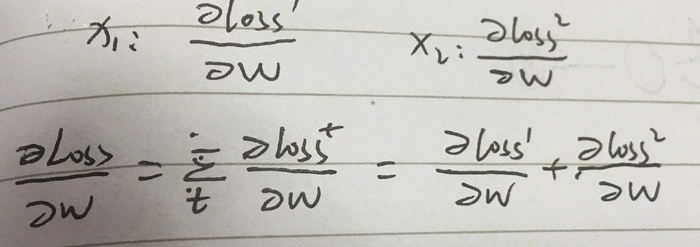 x₁: ∂loss¹/∂W x₂: ∂loss²/∂W
∂Loss/∂W = ∑ₜ ∂lossᵗ/∂W = ∂loss¹/∂W + ∂loss²/∂W